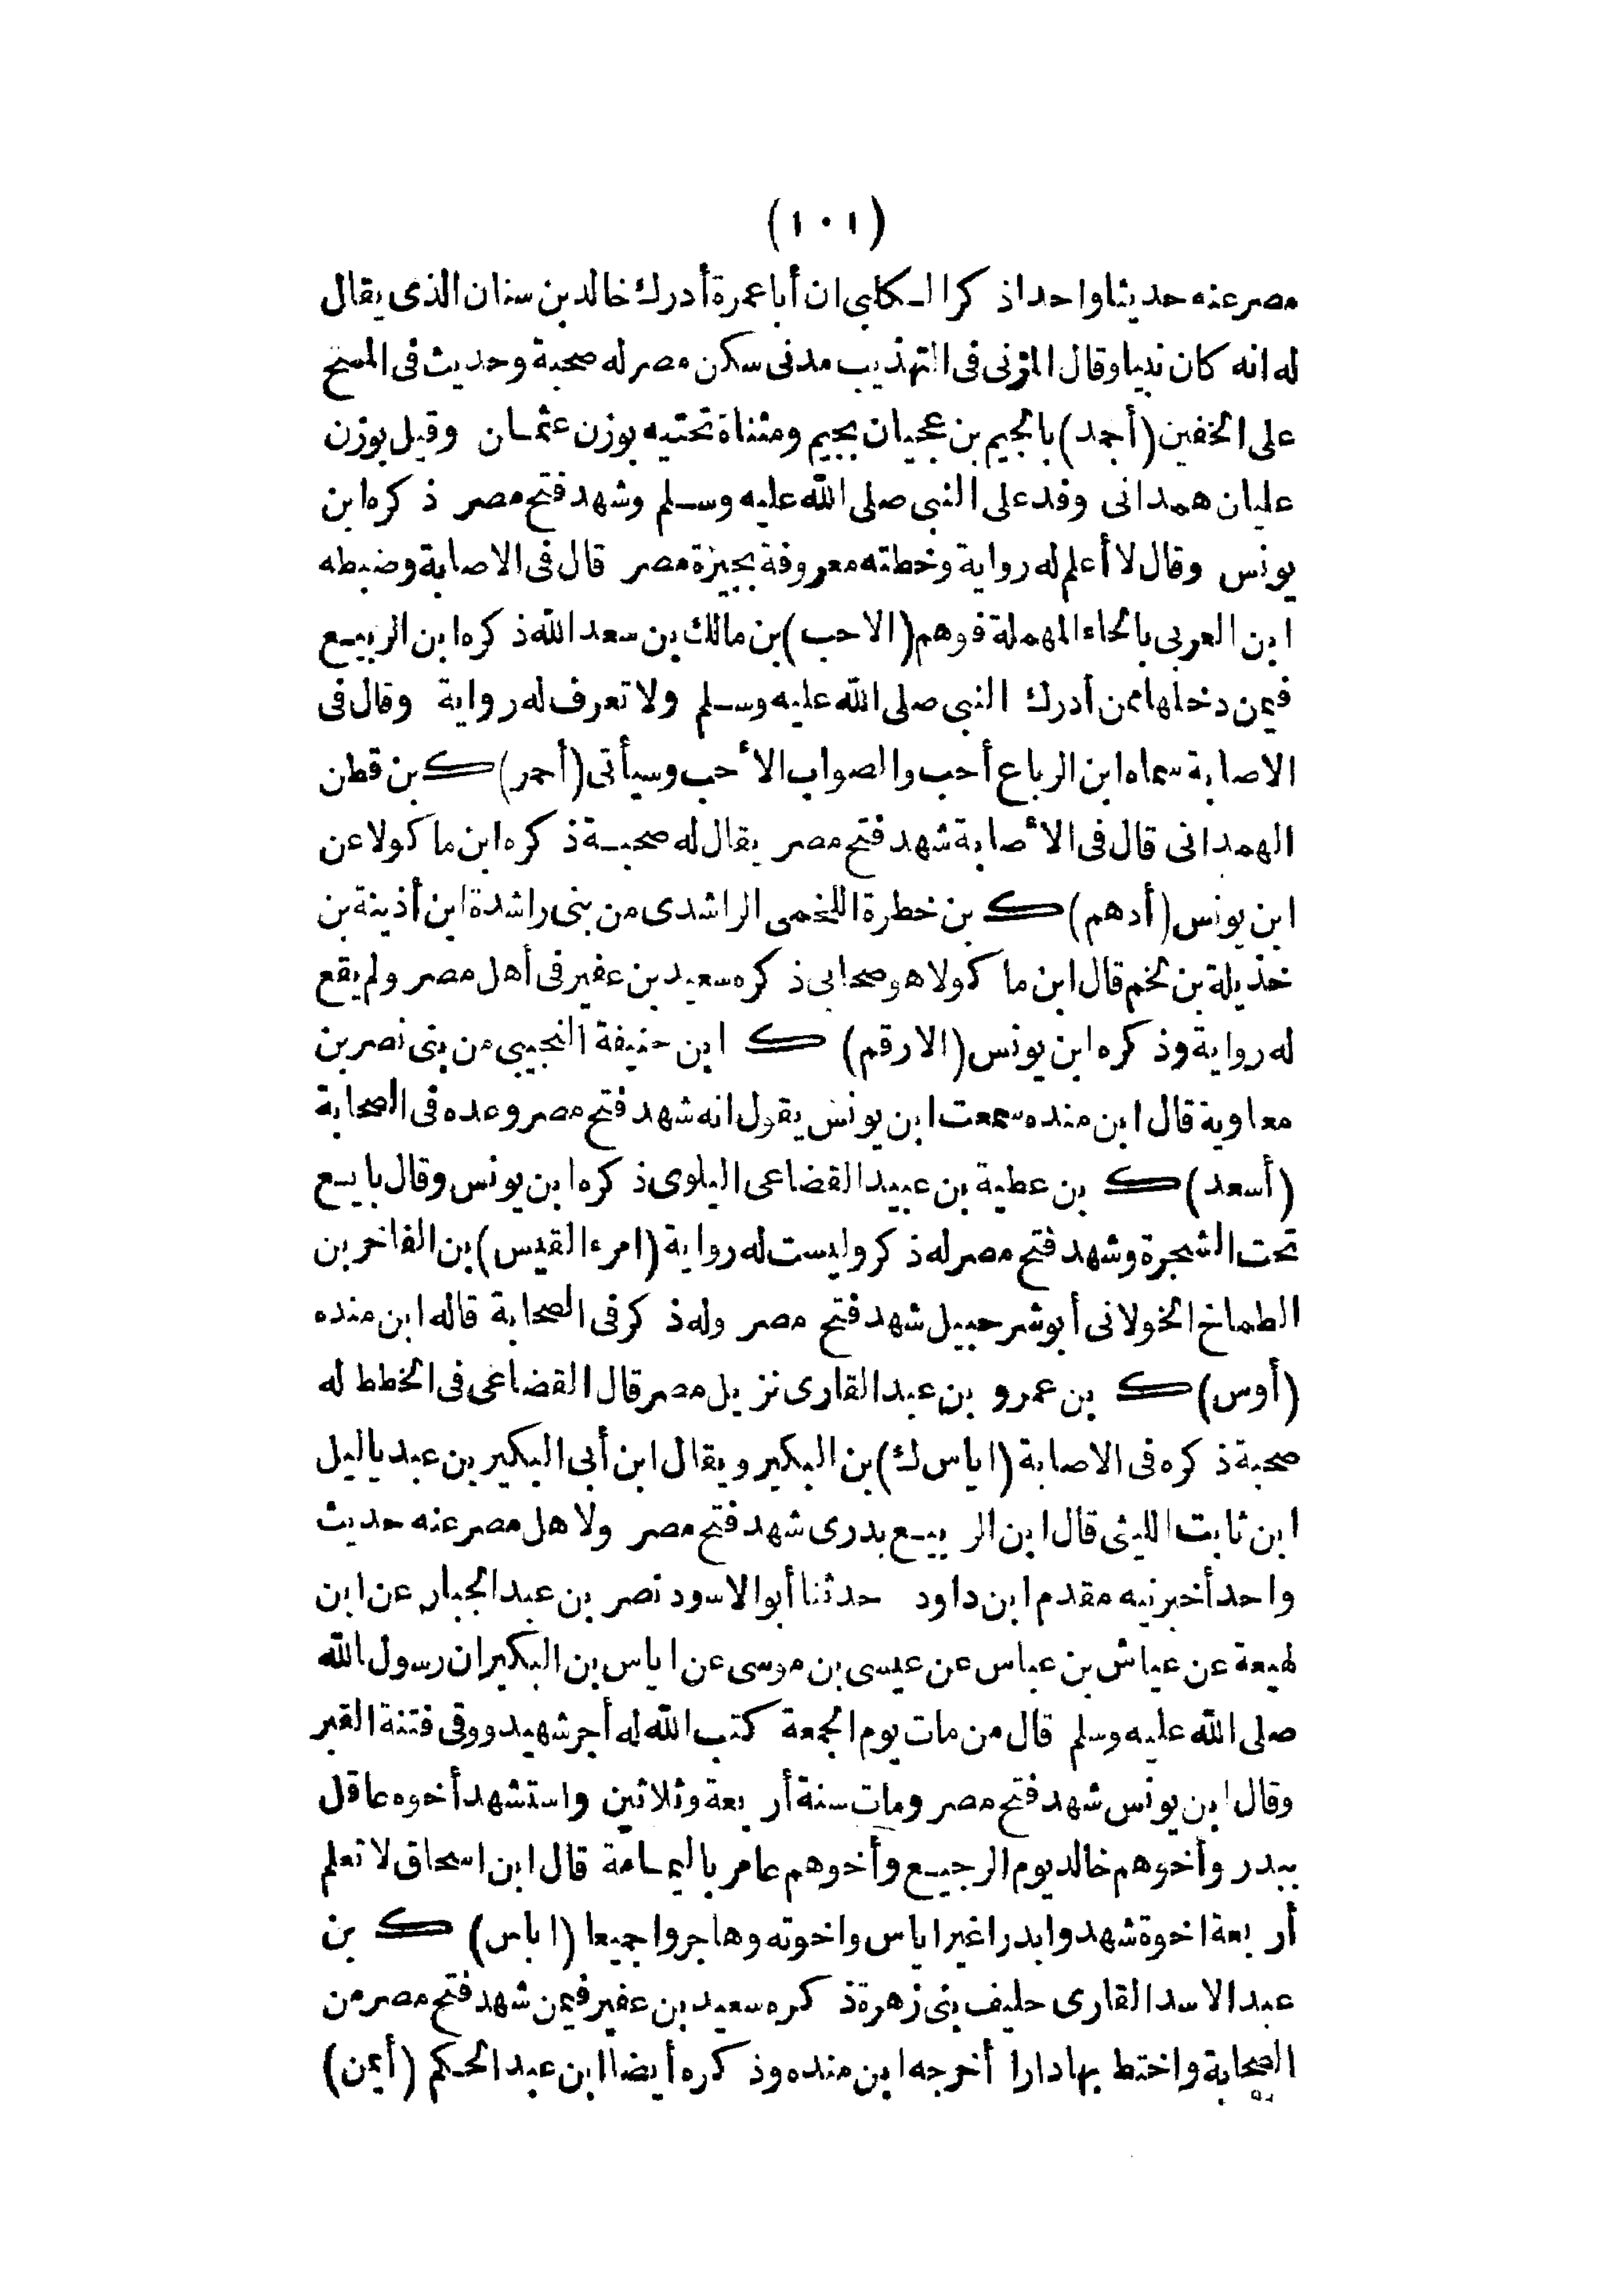 (١٠١)
مصر عنه حديثا واحدا ذكر الكلبى ان أبا عمرة أدرك خالد بن سنان الذى يقال
له انه كان نبيا وقال المزنى فى التهذيب مدنى سكن مصر له صحبة وحديث فى المسح
على الخفين (أجمد) بالجيم بن عجيان بجيم ومثناة تحتيه بوزن عثمان وقيل بوزن
عليان همدانى وفد على النبى صلى الله عليه وسلم وشهد فتح مصر ذكره ابن
يونس وقال لا أعلم له رواية وخطته معروفة بجيزة مصر قال فى الاصابة وضبطه
ابن العربى بالحاء المهملة فوهم (الاحب) بن مالك بن سعد الله ذكره ابن الربيع
فيمن دخلها ممن أدرك النبى صلى الله عليه وسلم ولا تعرف له رواية وقال فى
الاصابة سماه ابن الرباع أحب والصواب الأحب وسيأتى (أحمر) ك بن قطن
الهمدانى قال فى الأصابة شهد فتح مصر يقال له صحبة ذكره ابن ماكولا عن
ابن يونس (أدهم) ك بن خطرة اللخمى الراشدى من بنى راشدة ابن أذينة بن
خذيلة بن لخم قال ابن ماكولا هو صحابى ذكره سعيد بن عفير فى أهل مصر ولم يقع
له رواية وذكره ابن يونس (الارقم) ك ابن حنيفة النجيبى من بنى نصر بن
معاوية قال ابن منده سمعت ابن يونس يقول انه شهد فتح مصر وعده فى الصحابة
(أسعد) ك بن عطية بن عبيد القضاعى البلوى ذكره ابن يونس وقال بايع
تحت الشجرة وشهد فتح مصر له ذكر وليست له رواية (امرء القيس) بن الفاخر بن
الطماخ الخولانى أبو شرحبيل شهد فتح مصر وله ذكر فى الصحابة قاله ابن منده
(أوس) ك بن عمرو بن عبد القارى نزيل مصر قال القضاعى فى الخطط له
صحبة ذكره فى الاصابة (اياس ك) بن البكير ويقال ابن أبى البكير بن عبد ياليل
ابن ثابت الليثى قال ابن الربيع بدرى شهد فتح مصر ولاهل مصر عنه حديث
واحد أخبرنيه مقدم ابن داود حدثنا أبو الاسود نصر بن عبد الجبار عن ابن
لهيعة عن عياش بن عباس عن عيسى بن موسى عن اياس بن البكير ان رسول الله
صلى الله عليه وسلم قال من مات يوم الجمعة كتب الله له أجر شهيد ووقى فتنة القبر
وقال ابن يونس شهد فتح مصر ومات سنة أربعة وثلاثين واستشهد أخوه عاقل
ببدر وأخوهم خالد يوم الرجيع وأخوهم عامر باليمامة قال ابن اسحاق لا تعلم
أربعة اخوة شهدوا بدرا غير اياس واخوته وهاجروا جميعا (اياس) ك بن
عبد الاسد القارى حليف بنى زهرة ذكره سعيد بن عفير فيمن شهد فتح مصر من
الصحابة واختط بها دارا أخرجه ابن منده وذكره أيضا ابن عبد الحكم (أيمن)